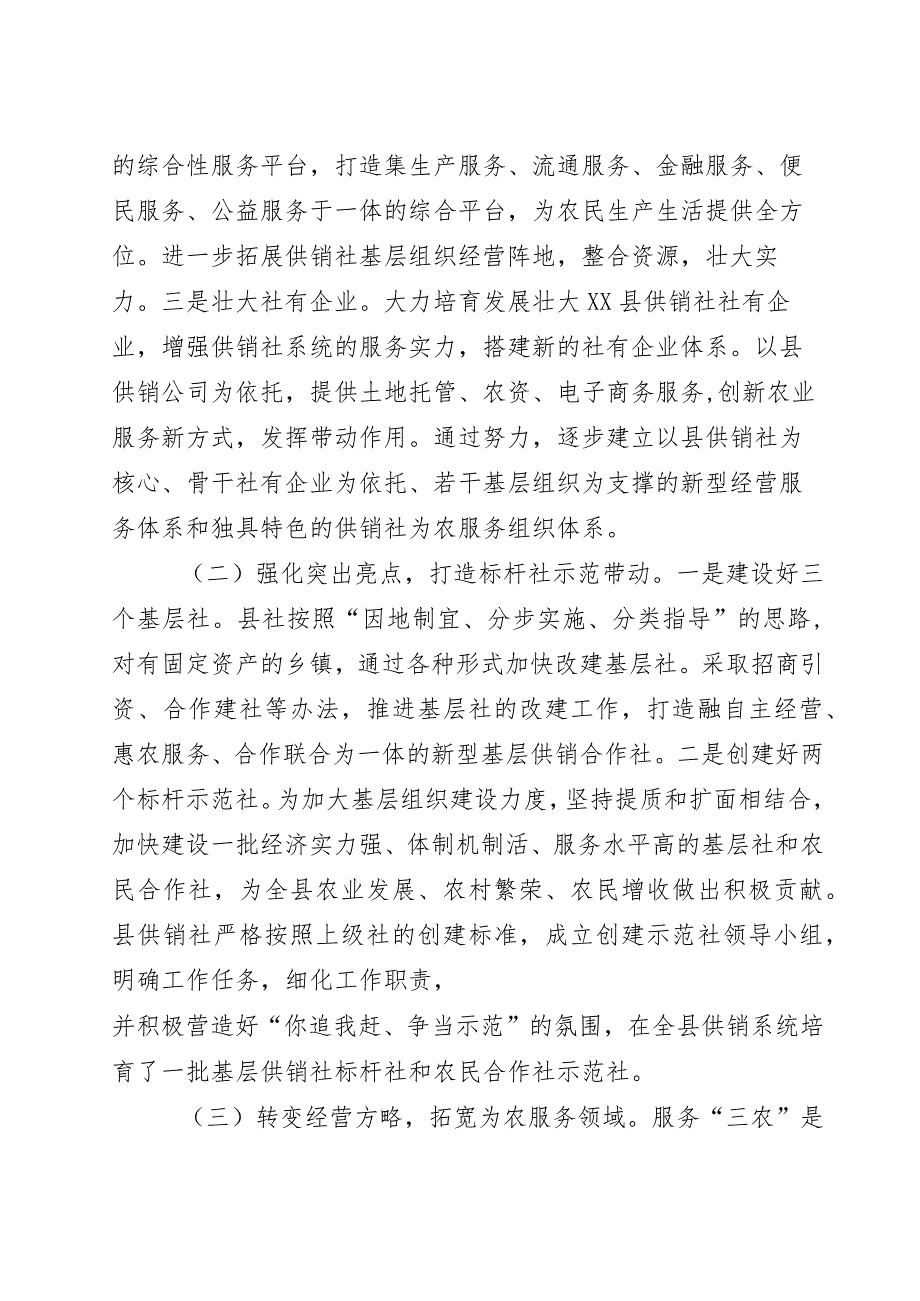 的综合性服务平台，打造集生产服务、流通服务、金融服务、便
民服务、公益服务于一体的综合平台，为农民生产生活提供全方
位。进一步拓展供销社基层组织经营阵地，整合资源，壮大实
力。三是壮大社有企业。大力培育发展壮大XX县供销社社有企
业，增强供销社系统的服务实力，搭建新的社有企业体系。以县
供销公司为依托，提供土地托管、农资、电子商务服务,创新农业
服务新方式，发挥带动作用。通过努力，逐步建立以县供销社为
核心、骨干社有企业为依托、若干基层组织为支撑的新型经营服
务体系和独具特色的供销社为农服务组织体系。
（二）强化突出亮点，打造标杆社示范带动。一是建设好三
个基层社。县社按照“因地制宜、分步实施、分类指导”的思路，
对有固定资产的乡镇，通过各种形式加快改建基层社。采取招商引
资、合作建社等办法，推进基层社的改建工作，打造融自主经营、
惠农服务、合作联合为一体的新型基层供销合作社。二是创建好两
个标杆示范社。为加大基层组织建设力度，坚持提质和扩面相结合，
加快建设一批经济实力强、体制机制活、服务水平高的基层社和农
民合作社，为全县农业发展、农村繁荣、农民增收做出积极贡献。
县供销社严格按照上级社的创建标准，成立创建示范社领导小组，
明确工作任务，细化工作职责，
并积极营造好“你追我赶、争当示范”的氛围，在全县供销系统培
育了一批基层供销社标杆社和农民合作社示范社。
（三）转变经营方略，拓宽为农服务领域。服务“三农”是